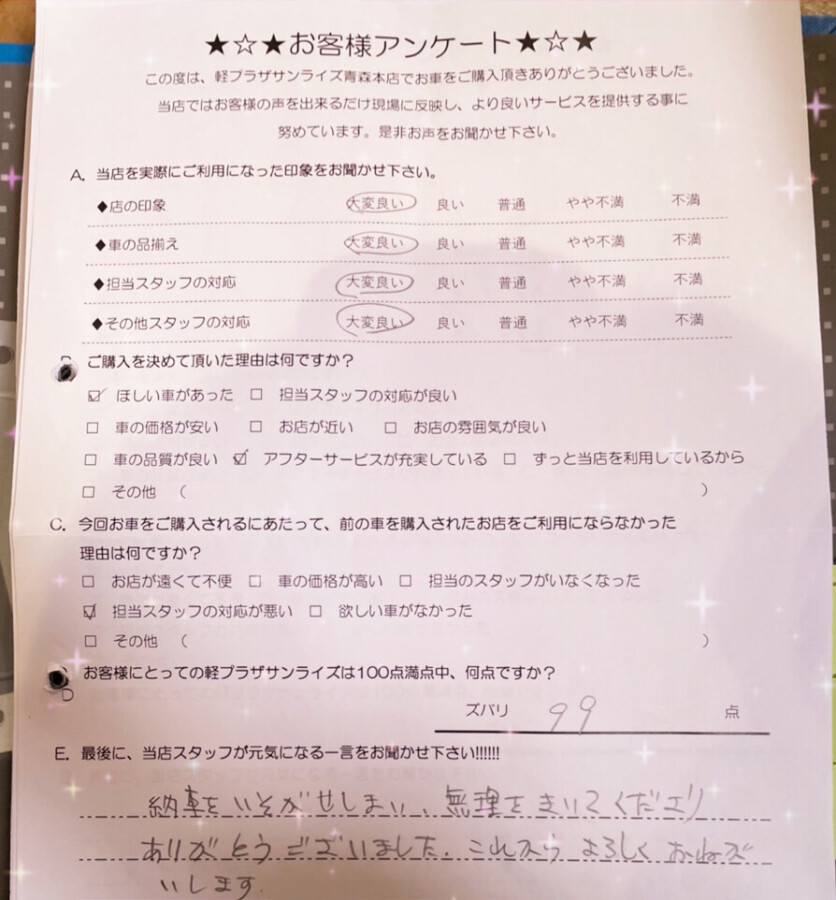 ★☆★お客様アンケート★☆★
この度は、軽プラザサンライズ青森本店でお車をご購入頂きありがとうございました。
当店ではお客様の声を出来るだけ現場に反映し、より良いサービスを提供する事に
努めています。是非お声をお聞かせ下さい。
A. 当店を実際にご利用になった印象をお聞かせ下さい。
◆店の印象 大変良い 良い 普通 やや不満 不満
◆車の品揃え 大変良い 良い 普通 やや不満 不満
◆担当スタッフの対応 大変良い 良い 普通 やや不満 不満
◆その他スタッフの対応 大変良い 良い 普通 やや不満 不満
ご購入を決めて頂いた理由は何ですか？
☑ ほしい車があった □ 担当スタッフの対応が良い
□ 車の価格が安い □ お店が近い □ お店の雰囲気が良い
□ 車の品質が良い ☑ アフターサービスが充実している □ ずっと当店を利用しているから
□ その他 （ ）
C. 今回お車をご購入されるにあたって、前の車を購入されたお店をご利用にならなかった
理由は何ですか？
□ お店が遠くて不便 □ 車の価格が高い □ 担当のスタッフがいなくなった
☑ 担当スタッフの対応が悪い □ 欲しい車がなかった
□ その他 （ ）
D お客様にとっての軽プラザサンライズは100点満点中、何点ですか？
ズバリ 99 点
E. 最後に、当店スタッフが元気になる一言をお聞かせ下さい!!!!!!
納車をいそがせしまい、無理をきいてくださり
ありがとうございました。これからよろしくおねが
いします。